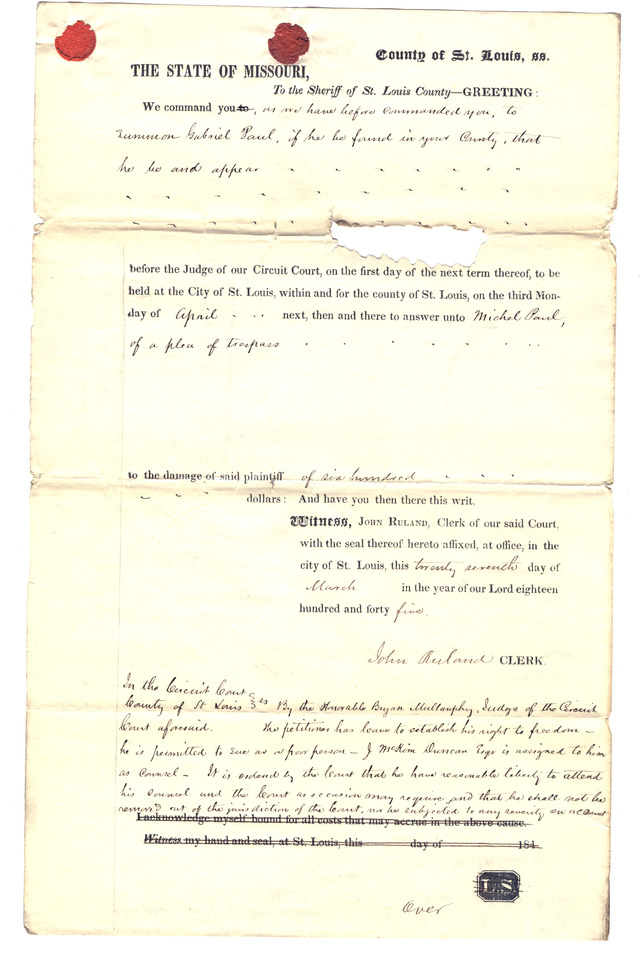 County of St. Louis, ss.
THE STATE OF MISSOURI,
To the Sheriff of St. Louis County—GREETING:
We command you to, as we have before commanded you, to
summon Gabriel Paul, if he be found in your County, that
he be and appear
before the Judge of our Circuit Court, on the first day of the next term thereof, to be
held at the City of St. Louis, within and for the county of St. Louis, on the third Mon-
day of April next, then and there to answer unto Michel Paul,
of a plea of trespass
to the damage of said plaintiff of six hundred
dollars: And have you then there this writ.
Witness, JOHN RULAND, Clerk of our said Court,
with the seal thereof hereto affixed, at office, in the
city of St. Louis, this twenty seventh day of
March in the year of our Lord eighteen
hundred and forty five.
John Ruland CLERK.
In the Circuit Court
County of St Louis ss By the Honorable Bryan Mullanphy, Judge of the Circuit
Court aforesaid. The petitioner has leave to establish his right to freedom –
he is permitted to sue as a poor person – J McKim Duncan Esqr is assigned to him
as Counsel – It is ordered by the Court that he have reasonable liberty to attend
his counsel and the Court as occasion may require and that he shall not be
removed out of the jurisdiction of the Court, nor be subjected to any severity on account
I acknowledge myself bound for all costs that may accrue in the above cause.
Witness my hand and seal, at St. Louis, this day of 184
L S
Over